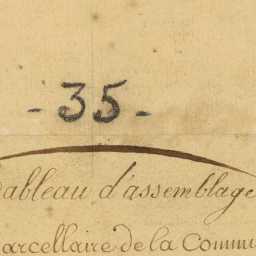 - 35 -
ableau d'assemblage
arcellaire de la Commu